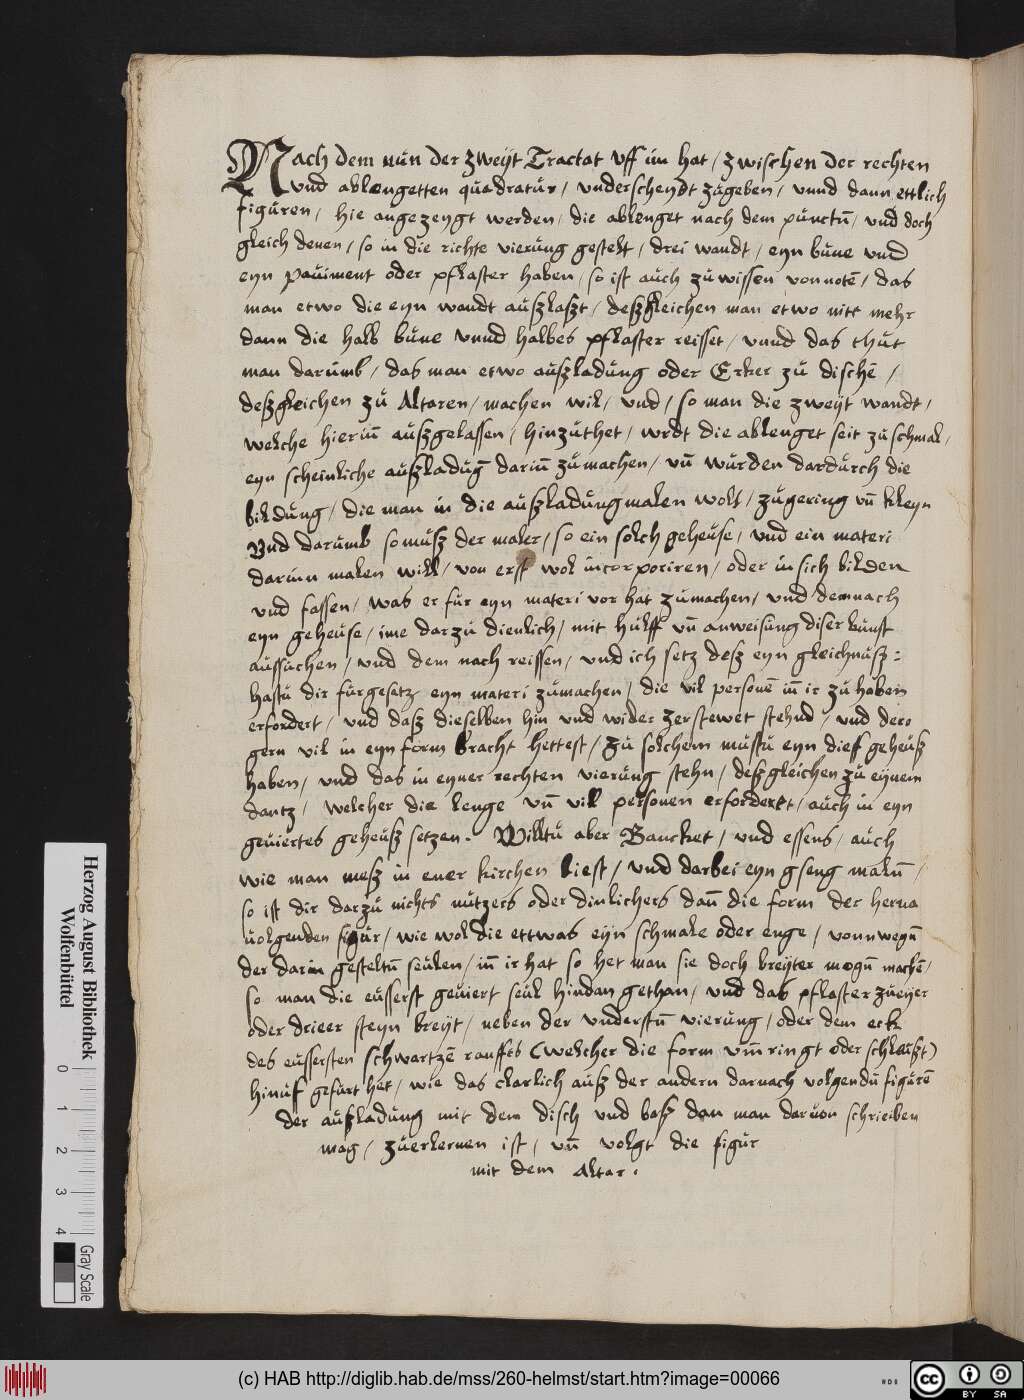 Nach dem nün der zweÿt Tractat vff im hat / zwischen der rechten
vnd ablengetten quadratür / vnderscheydt zügeben / vnnd dann ettlich
figüren / hie angezeygt werden / die ablenget nach dem pünctū / vnd doch
gleich denen / so in die richte vierüng gestelt / drei wandt / eyn büne vnd
eyn paüiment oder pflaster haben / so ist aüch zü wissen vonnotē / das
man etwo die eyn wandt aüszlaszt / deszgleichen man etwo nitt mehr
dann die halb büne vnnd halbes pflaster reisset / vnnd das thüt
man darümb / das man etwo aüszladüng oder Erker zü dischē /
deszgleichen zü Altaren / machen wil / vnd / so man die zweÿt wandt /
welche hierin̄ aüszgelassen / hinzüthet / wrdt die ablenget seit zü schmal /
eyn scheinliche aüszladüḡ darin̄ zümachen / vn̄ würden dardürch die
bildüng / die man in die aüszladüng malen wolt / zügering vn̄ kleyn
Vnd darümb so müsz der maler / so ein solch geheüse / vnd ein materi
darinn malen will / von erst wol incorporiren / oder in sich bilden
vnd fassen / was er für eyn materi vor hat zümachen / vnd demnach
eyn geheüse / ime darzü dienlich / mit hülff vn̄ anweisüng diser künst
aüssüchen / vnd dem nach reissen / vnd ich setz desz eyn gleichnüsz :
hastü dir fürgesetz eyn materi zümachen / die vil personē in̄ ir zü haben
erfordert / vnd dasz dieselben hin vnd wider zerstewet stehnd / vnd dero
gern vil in eyn form bracht hettest / zü solchem müstü eyn dieff geheüsz
haben / vnd das in eyner rechten vierüng stehn / deszgleichen zü eÿnem
dantz / welcher die lenge vn̄ vil personen erfordert / aüch in eyn
geüiertes geheüsz setzen. Willtü aber Bancket / vnd essens / aüch
wie man mesz in ener kirchen liest / vnd darbei eyn gseng maln̄ /
so ist dir darzü nichts nützers oder dinlichers dan̄ die form der herna
uolgenden figür / wie wol die ettwas eÿn schmale oder enge / vonnwegn̄
der darin gesteltn̄ seülen / in̄ ir hat so het man sie doch breÿter mogn̄ machē /
so man die eüsserst geüiert seül hindan gethan / vnd das pflaster zweÿer
oder drieer steyn breÿt / neben der vnderstn̄ vierüng / oder dem eck
des eüssersten schwartzē raüffts (welcher die form vm̄ringt oder schleüszt)
hinüf gefürt het / wie das clarlich aüsz der andern darnach volgendn̄ figürē
der aüszladüng mit dem disch vnd basz dan man daruon schrieiben
mag / züerkennen ist / vn̄ uolgt die figür
mit dem Altar .
Herzog August Bibliothek
Wolfenbüttel
0 1 2 3 4
Gray Scale
(c) HAB http://diglib.hab.de/mss/260-helmst/start.htm?image=00066
HAB
cc BY SA